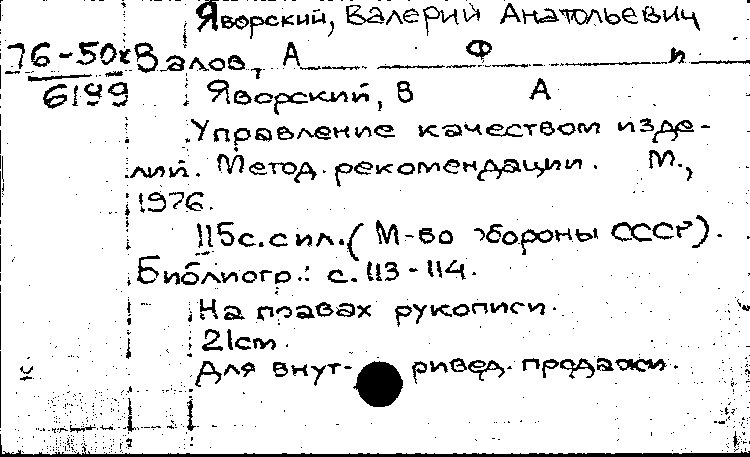 Яворский, Валерий Анатольевич
76-50к Валов, А Ф и
6199 Яворский, В А
Управление качеством изде-
лий. Метод. рекомендации. М.,
1976.
115с. с ил. (М-во обороны СССР).
Библиогр.: с. 113-114.
На правах рукописи.
21см.
Для внут- ривед. продажи.